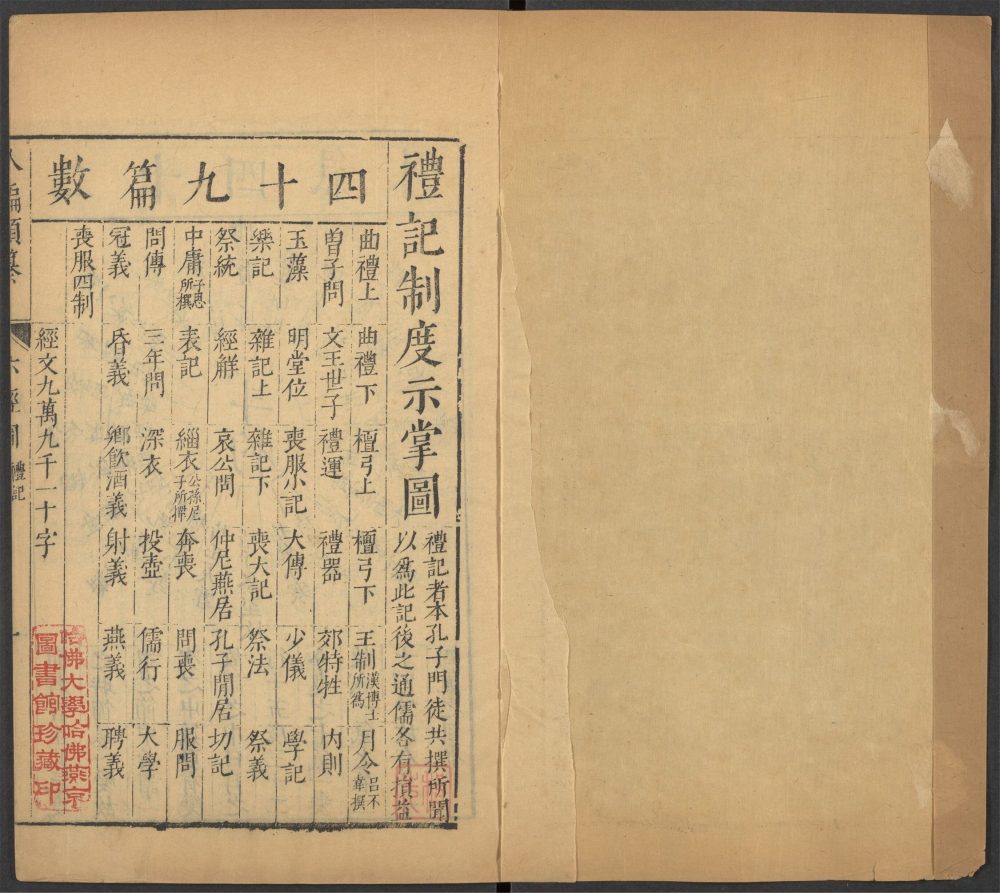 禮記制度示掌圖
禮記者本孔子門徒共撰所聞
以爲此記後之通儒各有損益
四十九篇數
曲禮上 曲禮下 檀弓上 檀弓下 王制漢博士所爲 月令呂不韋撰
曾子問 文王世子 禮運 禮器 郊特牲 內則
玉藻 明堂位 喪服小記 大傳 少儀 學記
樂記 雜記上 雜記下 喪大記 祭法 祭義
祭統 經觧 哀公問 仲尼燕居 孔子閒居 切記
中庸子思所撰 表記 緇衣公孫尼子所撰 奔喪 問喪 服問
問傳 三年問 深衣 投壺 儒行 大學
冠義 昏義 鄉飲酒義 射義 燕義 聘義
喪服四制
經文九萬九千一十字
八編類纂 六經圖 禮記 一
哈佛大學哈佛燕京
圖書館珍藏印